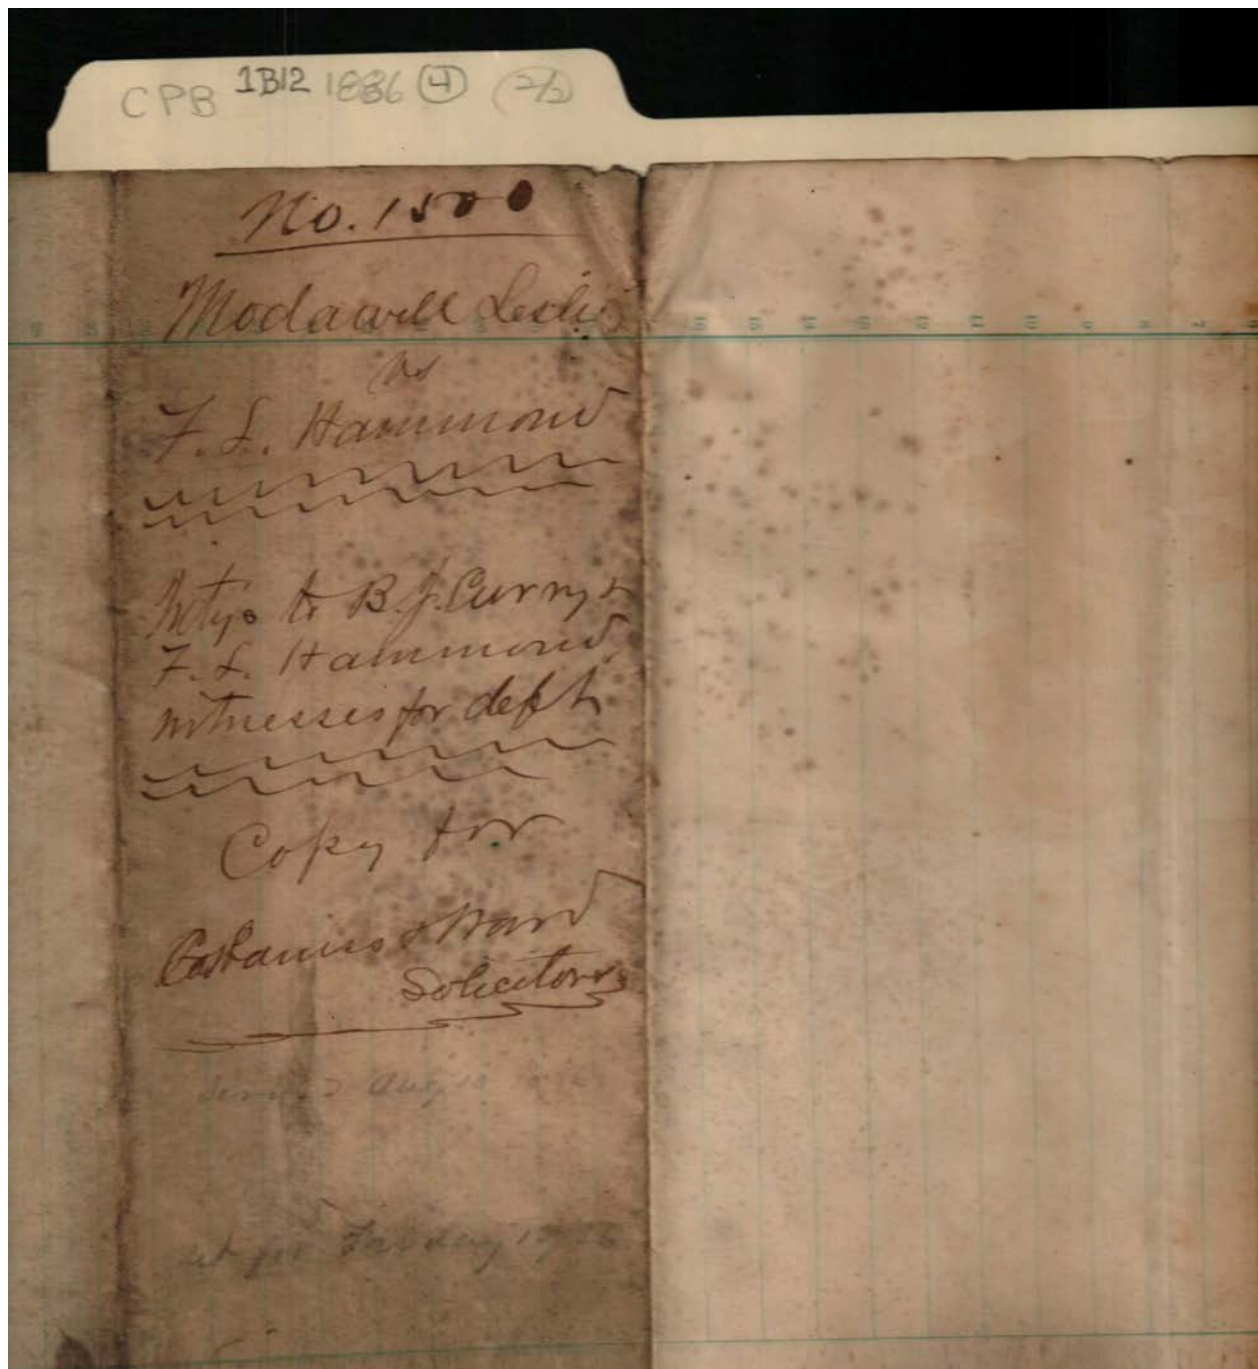 CPB 1B12 1886 4 (2/2)
No. 1500
Modawell Leslie
vs
F. L. Hammond
Intys to B. J. Curry &
F. L. Hammond
witnesses for deft
Copy for
& Ward
Solicitors
Aug
set for Tuesday